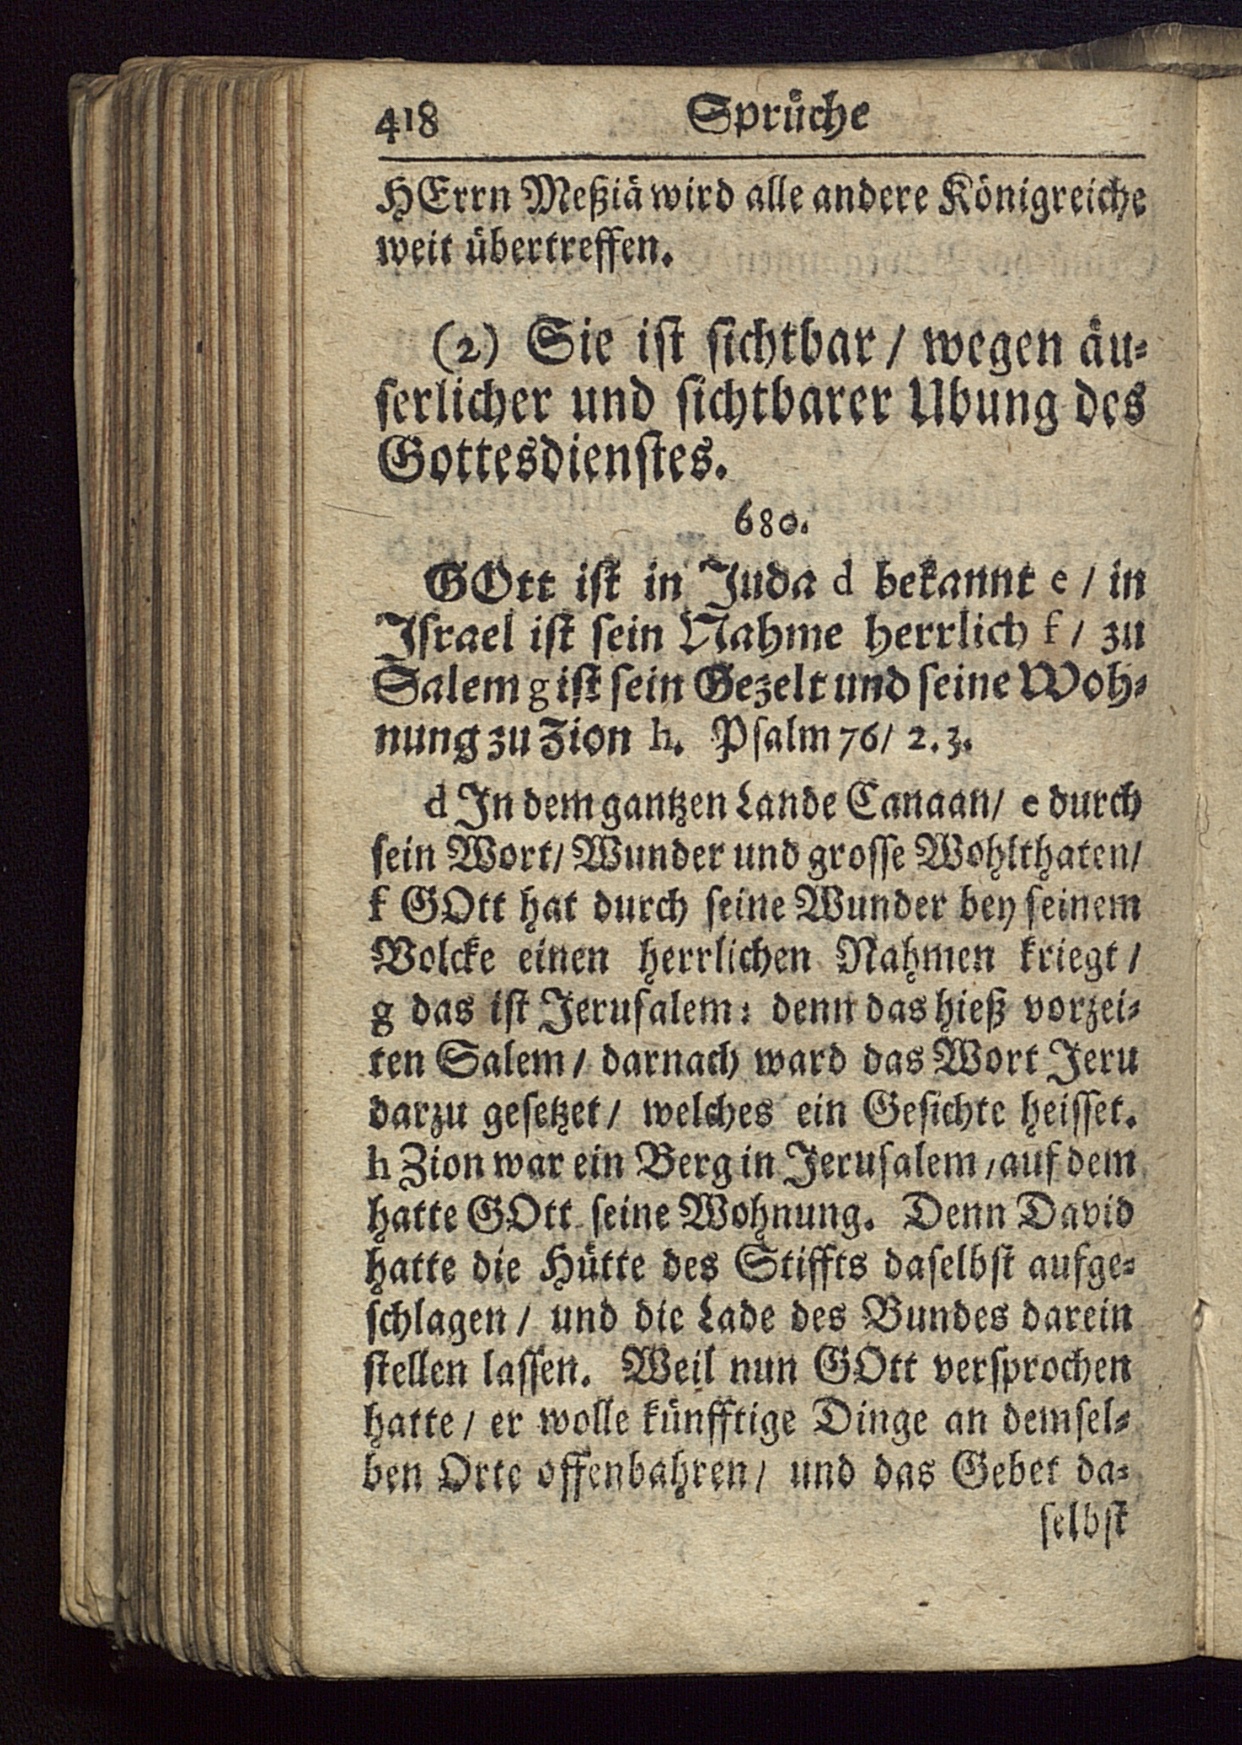 418 Sprüche
HErrn Meßiä wird alle andere Königreiche
weit übertreffen.
(2) Sie ist sichtbar / wegen äu-
serlicher und sichtbarer Ubung des
Gottesdienstes.
680.
GOtt ist in Juda d bekannt e / in
Israel ist sein Nahme herrlich f / zu
Salem g ist sein Gezelt und seine Woh-
nung zu Zion h. Psalm 76/ 2. 3.
d In dem gantzen Lande Canaan/ e durch
sein Wort/ Wunder und grosse Wohlthaten/
f GOtt hat durch seine Wunder bey seinem
Volcke einen herrlichen Nahmen kriegt /
g das ist Jerusalem: denn das hieß vorzei-
ten Salem / darnach ward das Wort Jeru
darzu gesetzet / welches ein Gesichte heisset.
h Zion war ein Berg in Jerusalem / auf dem
hatte GOtt seine Wohnung. Denn David
hatte die Hütte des Stiffts daselbst aufge-
schlagen / und die Lade des Bundes darein
stellen lassen. Weil nun GOtt versprochen
hatte / er wolle künfftige Dinge an demsel-
ben Orte offenbahren / und das Gebet da-
selbst